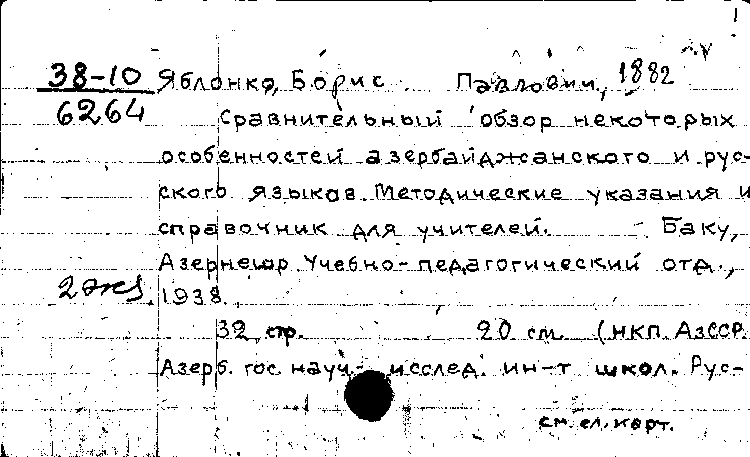 38-10
6264
Яблонко, Борис Павлович, 1882
Сравнительный обзор некоторых
особенностей азербайджанского и рус-
ского языков. Методические указания и
справочник для учителей. - Баку,
Азернешр. Учебно-педагогический отд.,
2 экз. 1938.
32 стр. 20 см. (НКП. АзССР.
Азерб. гос. науч.-исслед. ин-т школ. Рус-
см. сл. карт.